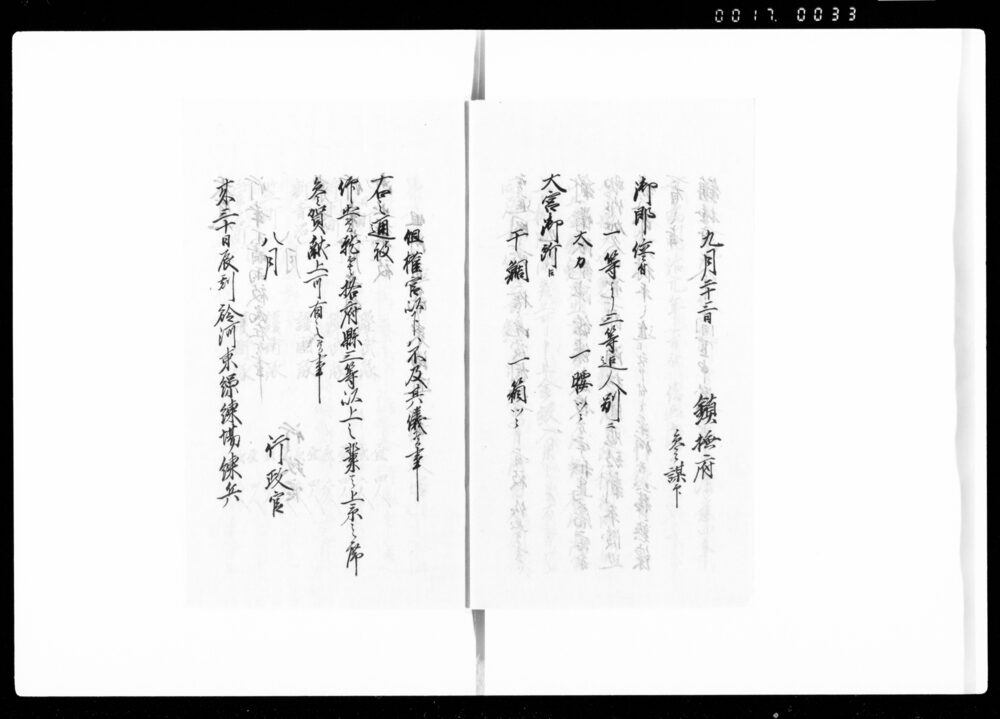 0017 0033
九月二十三日 鎮撫府
参謀中
御即位ニ付
一等ゟ三等迄人別ニ
太刀 一腰ツヽ
大宮御所江
干鯛 一箱ツヽ
但権官以下ハ不及其儀候事
右之通被
仰出候就而者府縣三等以上之輩ハ上京之席
参賀献上可有之候事
八月
行政官
来三十日辰刻於河東操練場練兵